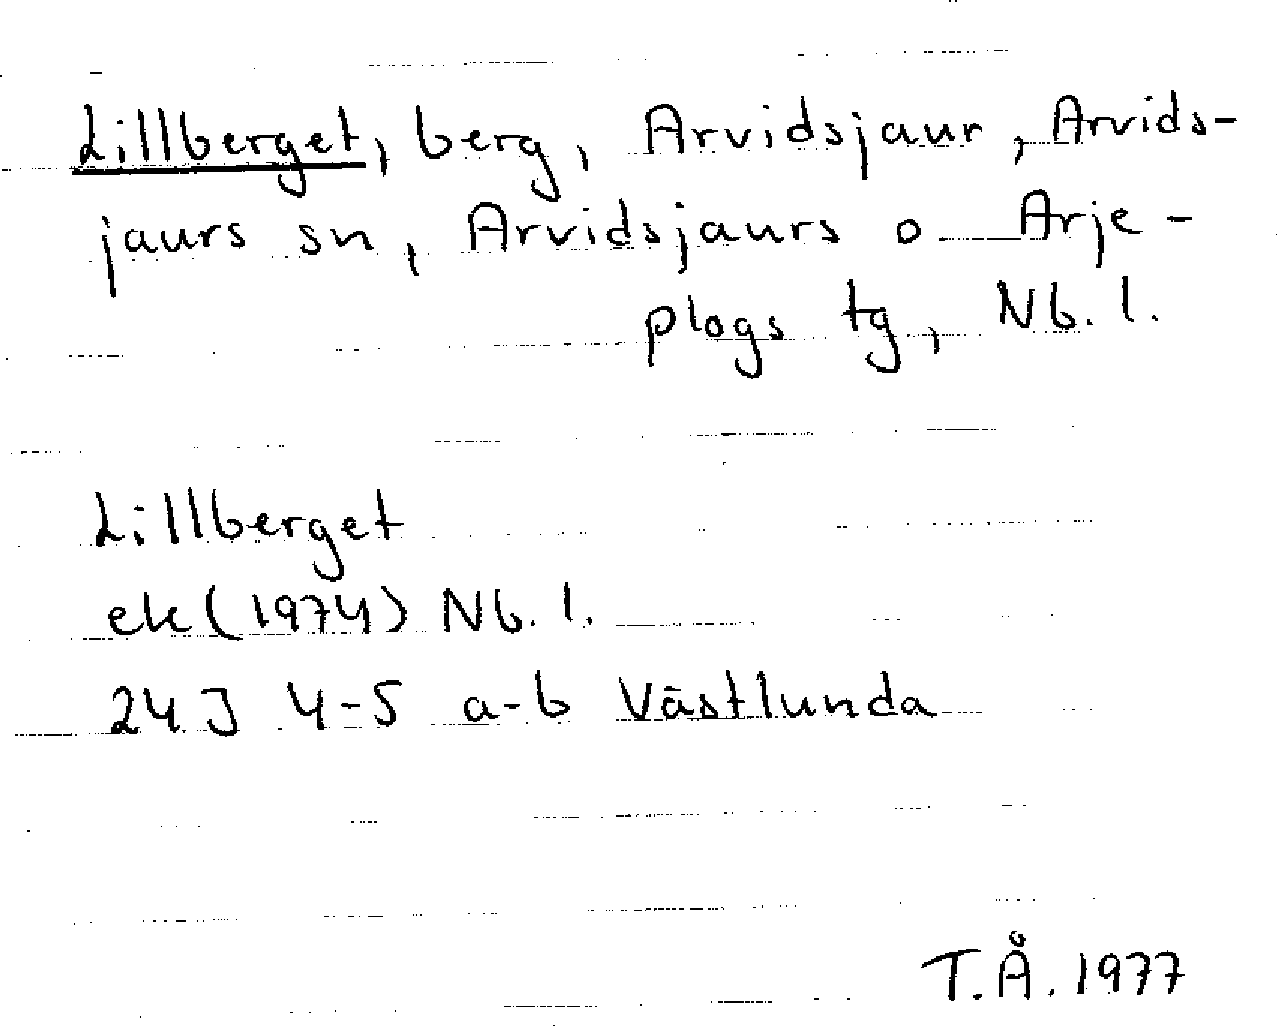 Lillberget, berg, Arvidsjaur, Arvids-
jaurs sn, Arvidsjaurs o Arje-
plogs tg, Nb. l.
Lillberget
ek (1974) Nb. l.
24 J 4-5 a-b Västlunda
T.Å. 1977